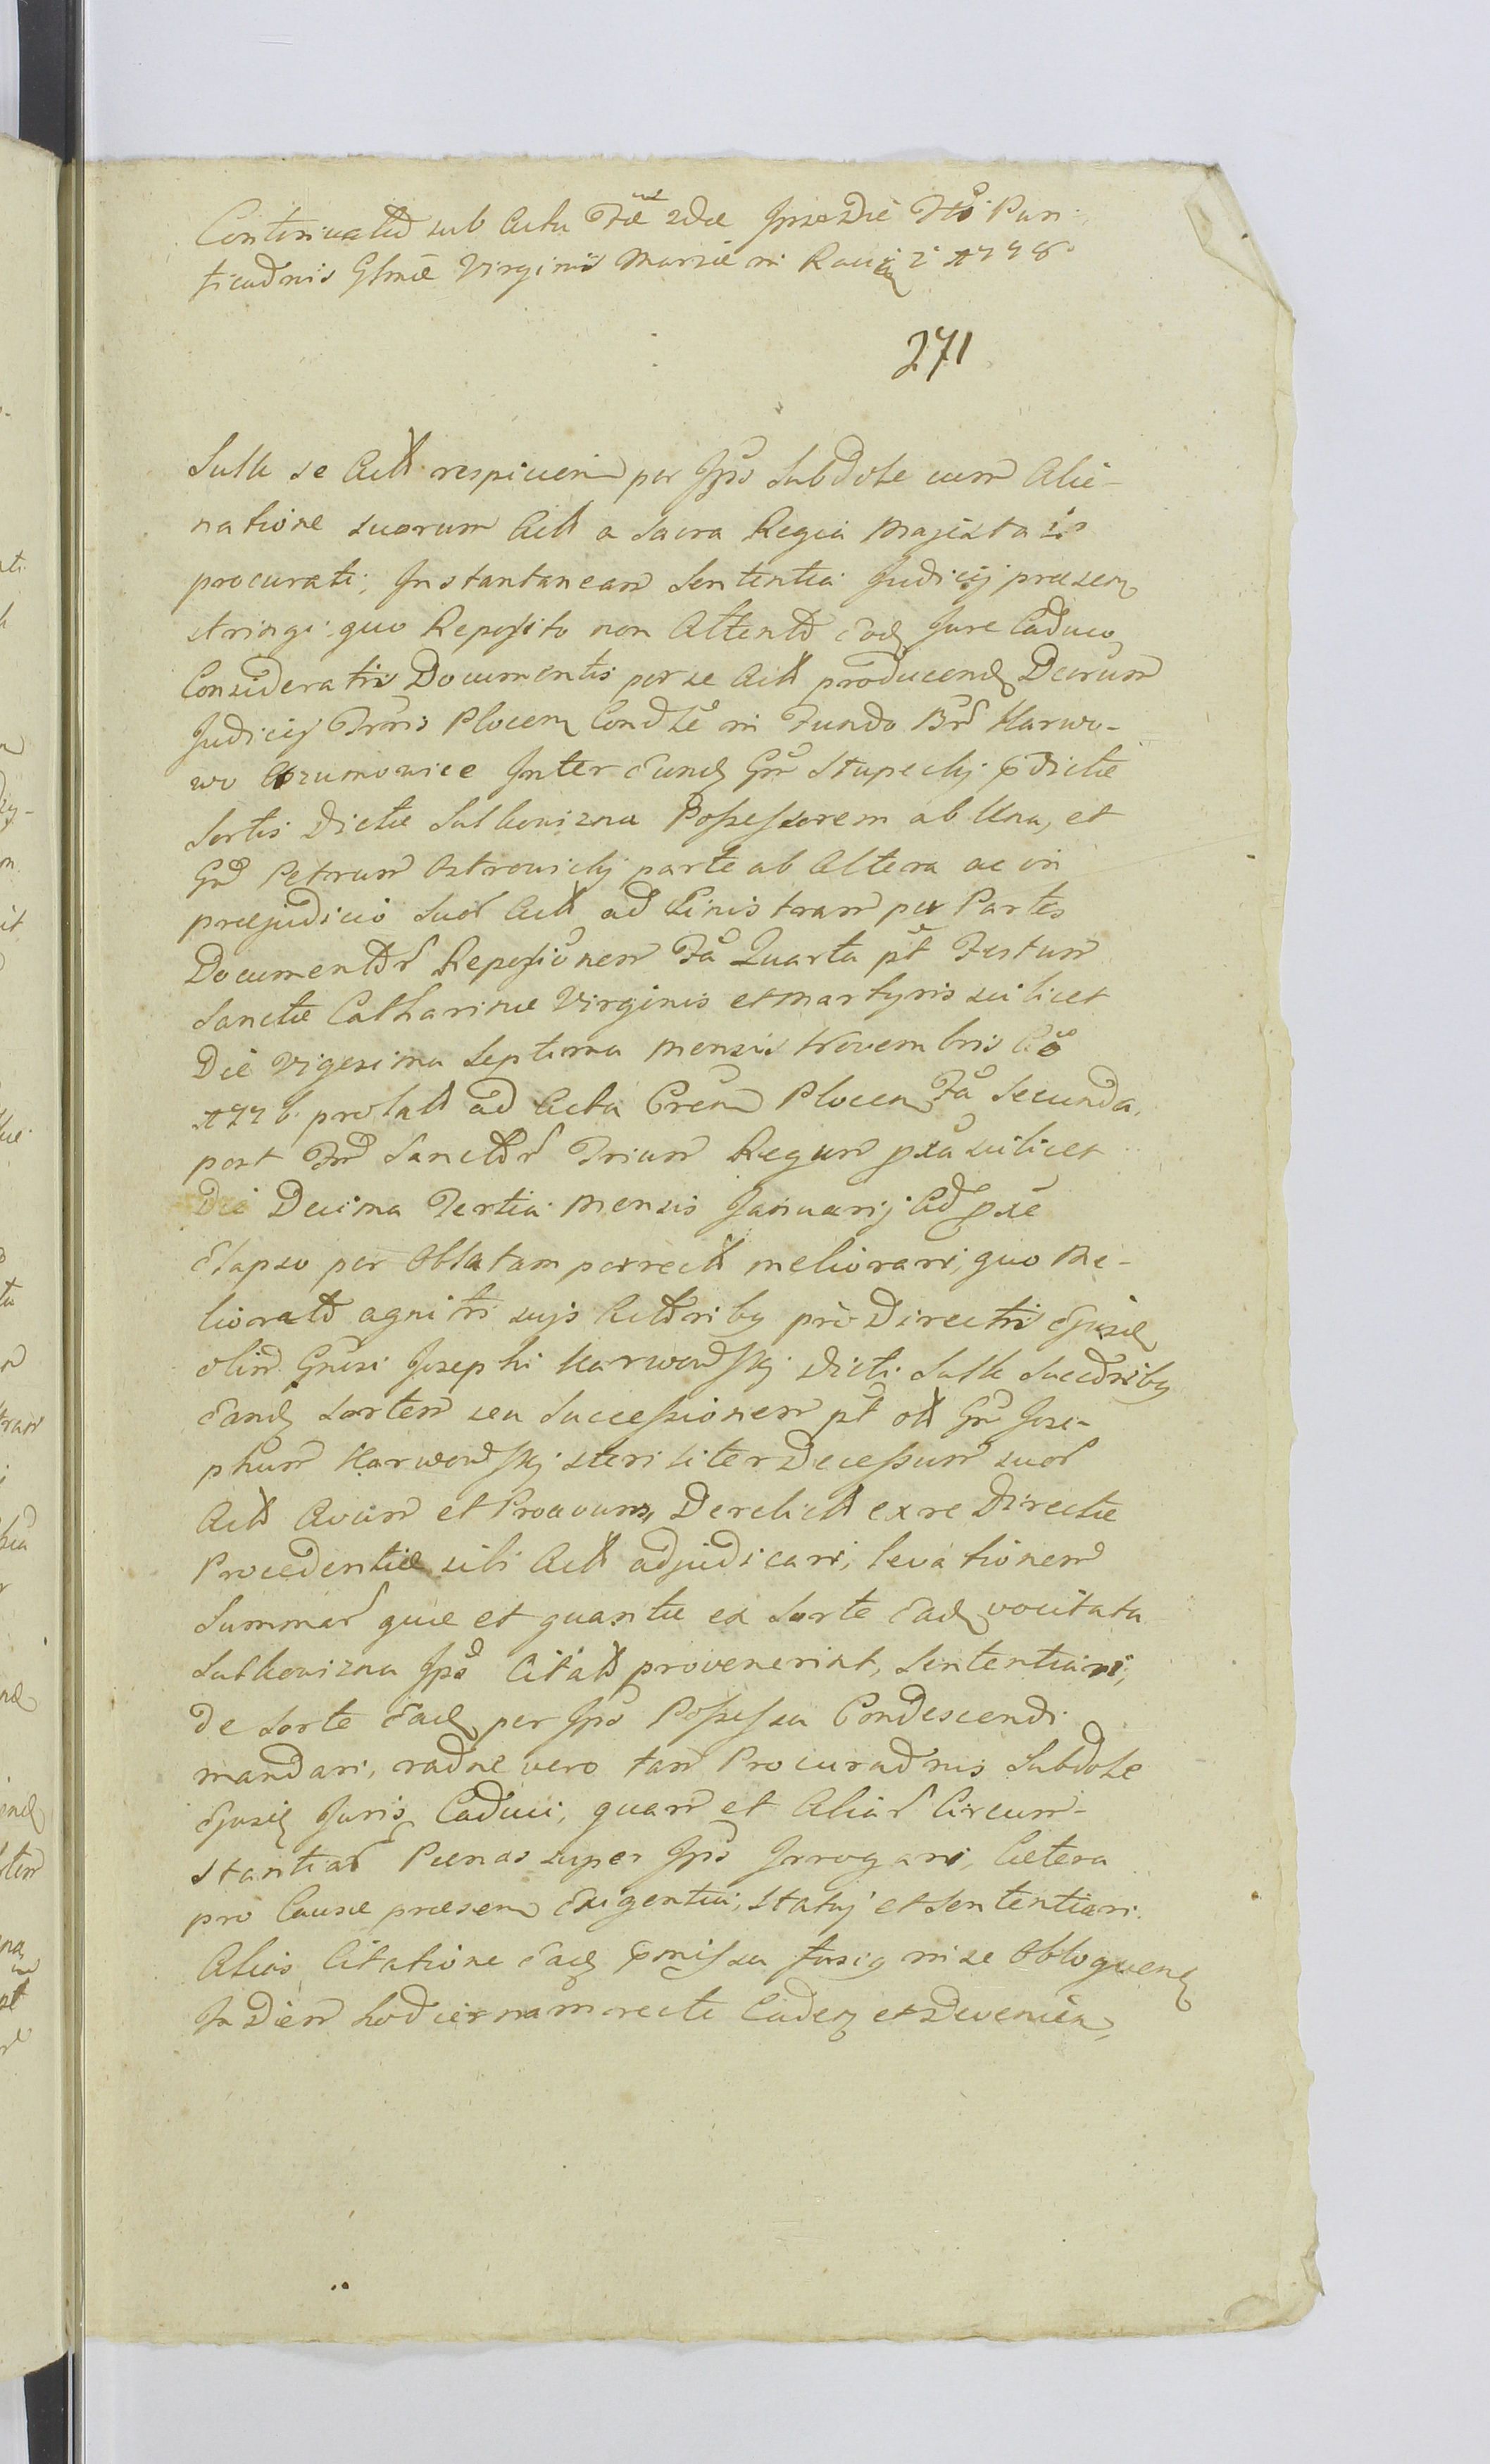 Continuatio sub Actu Fae 2dae Ipso Die Fto Puri
ficaonis Glmae Virginis Mariae in Raciąz 1778
271
Sulk se Act respicien per Ipso Subdole cum Alie-
natione suorum Act a Sacra Regia Majestatis
procurati, Instantanean Sententia Judicij praesen
stringi, quo Reposito non Attento Eod Jure Caduco
Consideratis Documentis per se Act producend Decrum
Judicij Trmis Plocen Condle in Fundo Bnr Karwo-
wo Krzumowice Inter Eund Gnr Stupechj pdictae
Sortis Dictae Sulkowizna Possessorem ab Una, et
Gnr Petrum Ostrowickj parte ab Altera ac in
praejudicio suor Act ad Sinistram per Partes
Documentor Reposionem Fa Quarta pt Festum
Sanctae Catharinae Virginis et Martyris scilicet
Die Vigesima Septima Mensis Novembris Ao
1776 prolat ad Acta Cren Plocen Fa Secunda
post Fm Sanctor Trium Regum pxa scilicet
Die Decima Tertia Mensis Januarij Ao pxe
Elapso per Oblatam porrect meliorari, quo Me-
liorato agnitis sujs Actoribq pro Directis Ejusd
olim Gnrsi Josephi Karwowskj Dicti Sulk Succoribq
Eand Sortem seu Successionem pt ol Gnr Jose-
phum Karwowskj steriliter Decessum suor
Act Avum et Proavum, Derelict ex re Directae
Procedentiae sibi Act adjudicari, levationem
Summar quae et quantae ex Sorte Ead vocitata
Sulkowizna Ipso Citato provenerint, Sententiari,
de Sorte Ead per Ipso Possessa Condescendi
mandari, raone vero tam Procuraonis Subdole
Ejusd Juris Caduci, quam et Aliar Circum-
stantiar Paenas super Ipso Irrogari, Caetera
pro Causae praesen Exigentia, Statuj et Sententiari.
Alias Citatione Ead pmissa fusiq in se Obloquend
In Diem hodiernam recte Caden et Devenien,